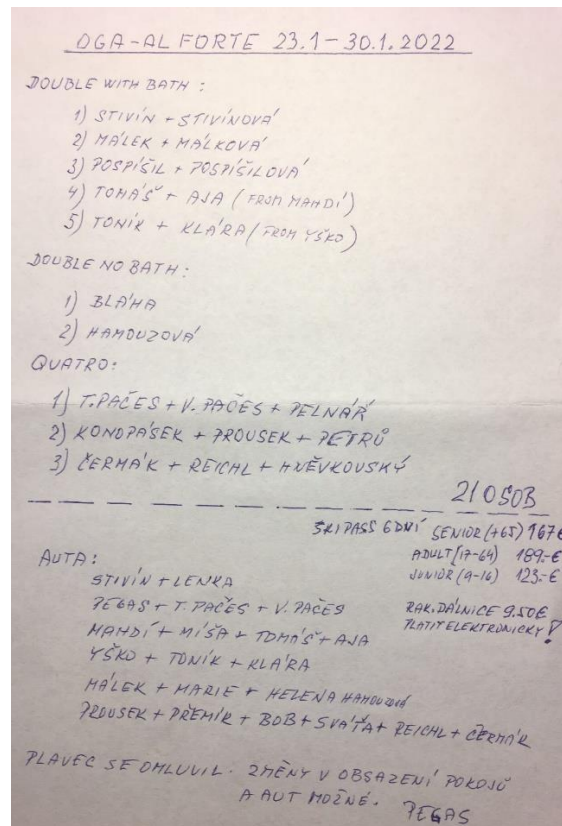 OGA-AL FORTE 23.1-30.1.2022
DOUBLE WITH BATH:
1) STIVÍN + STIVÍNOVÁ
2) MÁLEK + MÁLKOVÁ
3) POSPÍŠIL + POSPÍŠILOVÁ
4) TOMÁŠ + AJA (FROM MANDÍ)
5) TONÍK + KLÁRA (FROM YŠKO)
DOUBLE NO BATH:
1) BLÁHA
2) HAMOUZOVÁ
QUATRO:
1) T.PAČES + V. PAČES + PELNÁŘ
2) KONOPÁSEK + PROUSEK + PETRŮ
3) ČERMÁK + REICHL + HNĚVKOVSKÝ
21 OSOB
SKIPASS 6 DNÍ SENIOR (+65) 167€
ADULT (17-64) 189.-€
JUNIOR (9-16) 123.-€
RAK. DÁLNICE 9.50€
PLATIT ELEKTRONICKY!
AUTA:
STIVÍN + LENKA
PEGAS + T. PAČES + V. PAČES
MANDÍ + MÍŠA + TOMÁŠ + AJA
YŠKO + TONÍK + KLÁRA
MÁLEK + MARIE + HELENA HAMOUZOVÁ
PROUSEK + PŘEMÍR + BOB + SVÁŤA + REICHL + ČERMÁK
PLAVEC SE OMLUVIL. ZMĚNY V OBSAZENÍ POKOJŮ
A AUT MOŽNÉ. PEGAS